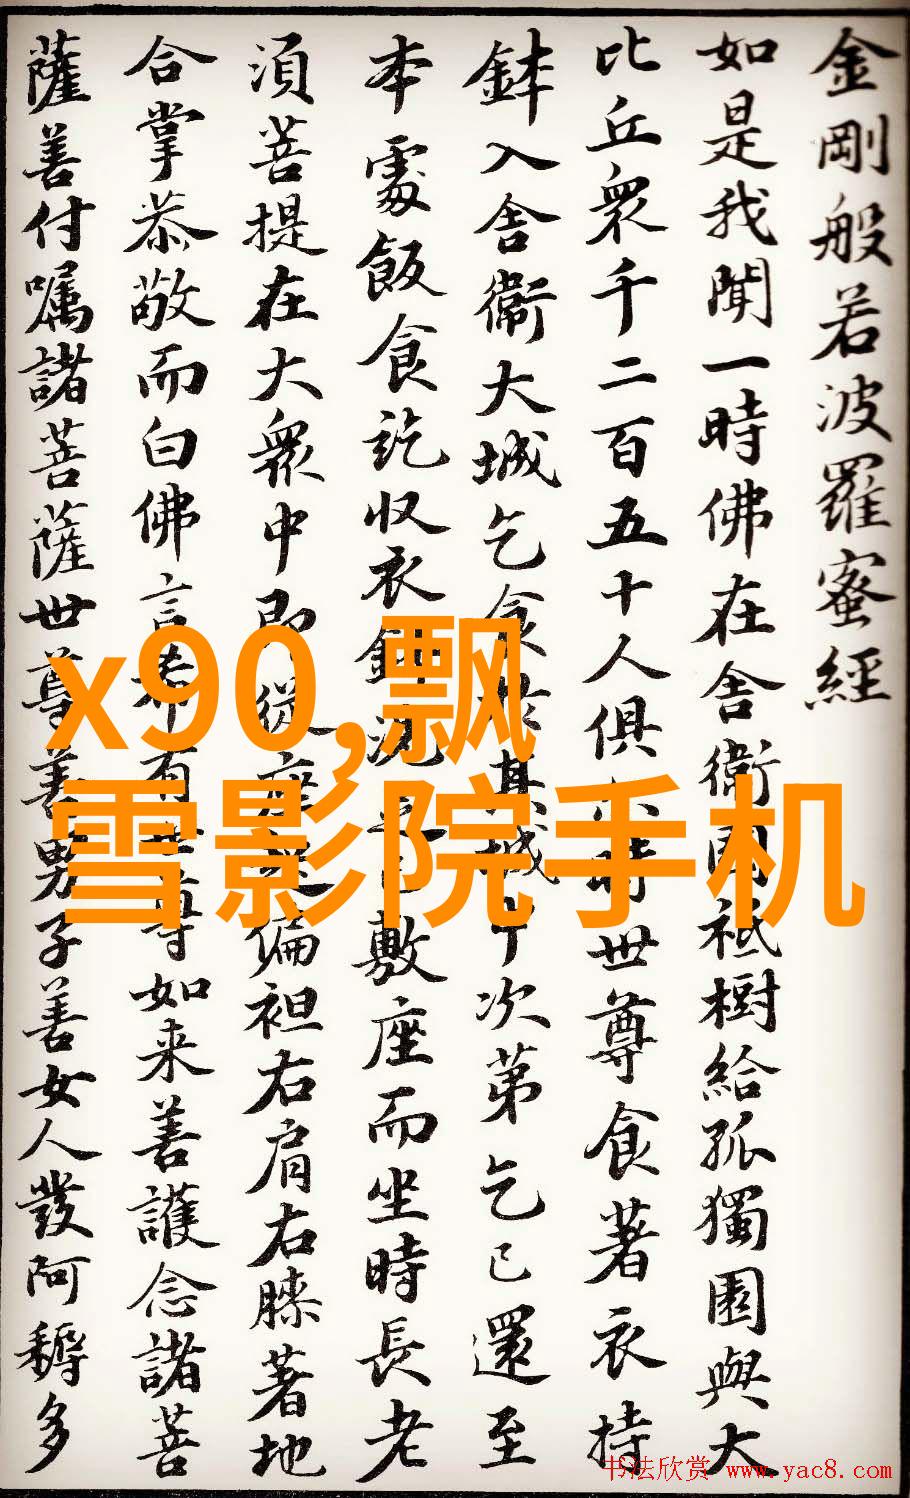 金剛般若波羅蜜經
如是我聞一時佛在舍衛國祇樹給孤獨園與大
比丘衆千二百五十人俱時世尊食著衣持
鉢入舍衛大城乞食於其城中次第乞已還至
本處飯食訖收衣鉢洗足已敷座而坐時長老
須菩提在大衆中即從座起偏袒右肩右膝著地
合掌恭敬而白佛言希有世尊如来善護念諸菩
薩善付囑諸菩薩世尊善男子善女人發阿耨多
x90,飘
雪影院手机
书法欣赏 www.yac8.com